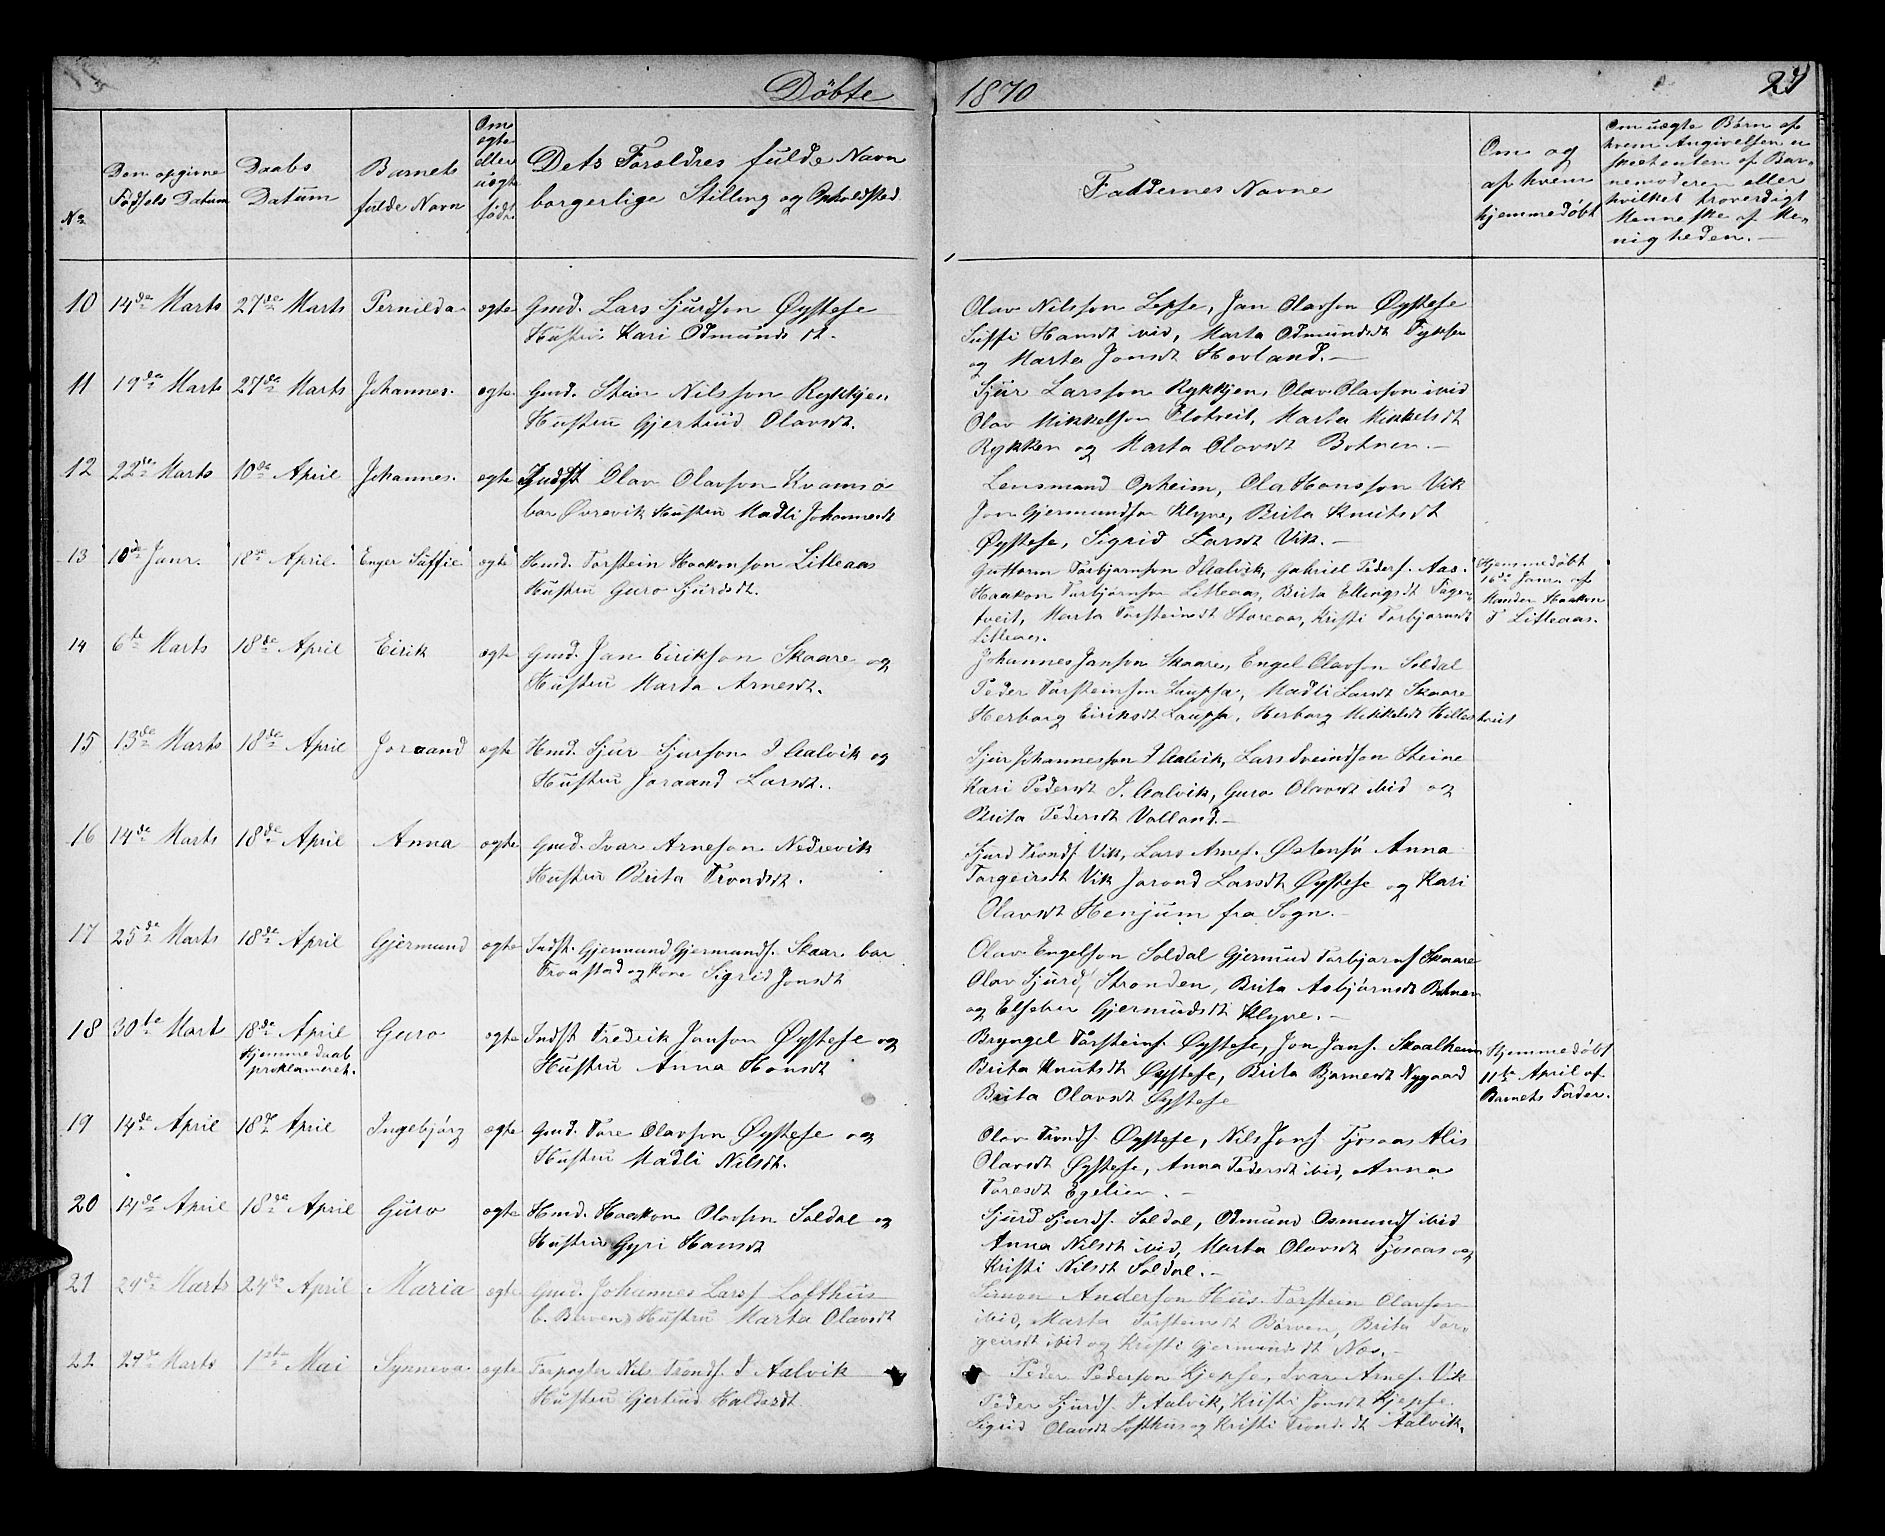 Döbte 1870 27
No
Den opgivne Fødsels Datum
Daabs Datum
Barnets fulde Navn
Om ægte eller uægte født
Dets Forældres fulde Navn borgerlige Stilling og Opholdsted
Faddernes Navne
Om og af hvem hjemmedøbt
Om uægte Børn af hvem Angivelsen er skeet enten af Barnemoderen eller hvilket troverdigt Menneske af Menigheden.
10 14de Marts 27de Marts Pernilda ægte Gmd. Lars Sjurdson Øystese
Hustru Kari Odmundsdt.
Olav Nilsson Lepse, Jan Olavson Øystese
Siffi Hansdt ibid, Marta Odmundsdt Fyksen
og Marta Jonsdt Hovland.
11 19de Marts 27de Marts Johannes. ægte. Gmd. Stein Nilsson Rykkjen
Hustru Gjertrud Olavsdt.
Sjur Larsson Rykkjen, Olav Olavson ibid
Olav Mikkelson Flotveit, Marta Mikkelsdt
Rykken og Marta Olavsdt Botnen.
12 22de Marts 10de April Johannes. ægte Indst Olav Olavson Kvamsø
bor Øvrevik Hustru Madli Johannesdt
Lensmand Opheim, Ola Hansson Vik
Jon Gjermundson Klyve, Brita Knutsdt
Øystese, Sigrid Larsdt Vik.
13 10de Janr. 18de April. Enger Siffie ægte Hmd. Torstein Haakonson Litleaas
Hustru Guro Sjurdsdt.
Guttorm Torbjørnson I Aalvik, Gabriel Peders. Aas.
Haakon Torbjørnson Litleaas, Brita Ellingsdt Fagertveit, Marta Torsteinsdt Storeaas, Kristi Torbjørnsdt
Litleaas.
Hjemmedøbt
16de Janr. af
Manden Haakon
T Litleaas.
14 6te Marts 18de April Eirik ægte Gmd. Jan Eirikson Skaare og
Hustru Marta Arnesdt.
Johannes Janson Skaare, Engel Olavson Soldal
Peder Torsteinson Laupsa, Madli Larsdt Skaare
Herborg Eiriksdt Laupsa, Herborg Mikkelsdt Hillestveit
15 13de Marts 18de April Joraand ægte Hmd. Sjur Sjurson I Aalvik og
Hustru Joraand Larsdt.
Sjur Johannesson I Aalvik, Lars Sveindson Steine
Kari Pedersdt I. Aalvik, Guro Olavsdt ibid og
Brita Pedersdt Valland.
16 14de Marts 18de April Anna ægte Gmd. Ivar Arneson Nedrevik
Hustru Brita Trondsdt.
Sjurd Tronds. Vik, Lars Arnes. Østensø Anna
Torgeirsdt Vik Jorond Larsdt Øystese og Kari
Olavsdt Henjum fra Sogn.
17 25de Marts 18de April Gjermund ægte Indst. Gjermund Gjermunds. Skaar bor
Traastad og Kone Sigrid Jonsdt
Olav Engelson Soldal Gjermund Torbjørns Skaare
Olav Sjurds Stranden, Brita Asbjørnsdt Botnen
og Elsebea Gjermundsdt Klyve.
18 30te Mart 18de April Guro ægte Indst Fredrik Janson Øystese og
Hjemmedaab Hustru Anna Hansdt
proklameret.
Bryngel Torsteins. Øystese, Jon Jans. Skaalheim
Brita Knutsdt Øystese, Brita Bjarnesdt Nygaard
Brita Olavsdt Øystese
Hjemmedøbt
11te April af
Barnets Fader.
19 14de April 18de April Ingebjørg ægte Gmd. Tore Olavson Øystese og
Hustru Madli Nilsdt.
Olav Tronds. Øystese, Nils Jons. Fjosaas Alis
Olavsdt Øystese, Anna Pedersdt ibid, Anna
Toresdt Egelien.
20 14de April 18de April Guro ægte Hmd. Haakon Olavson Soldal og
Hustru Gyri Hansdt
Sjurd Sjurds. Soldal, Odmund Osmunds ibid
Anna Nilsdt ibid, Marta Olavsdt Fjosaas og
Kristi Nilsdt Soldal.
21 24de Marts 24de April Maria ægte Gmd. Johannes Larss Lofthus
b. Berven Hustru Marta Olavsdt
Simon Anderson Hus Torstein Olavson
ibid, Marta Torsteinsdt Børven, Brita Torgeirsdt ibid og Kristi Gjermundsdt Næs.
22 27de Marts 1ste Mai Synneva ægte Forpagter Nils Tronds. I Aalvik
Hustru Gjertrud Haldorsdt
Peder Pederson Kjepse, Ivar Arnes. Vik
Peder Sjurds. I Aalvik, Kristi Jonsdt Kjepse
Sigrid Olavsdt Lofthus og Kristi Trondsdt Aalvik.